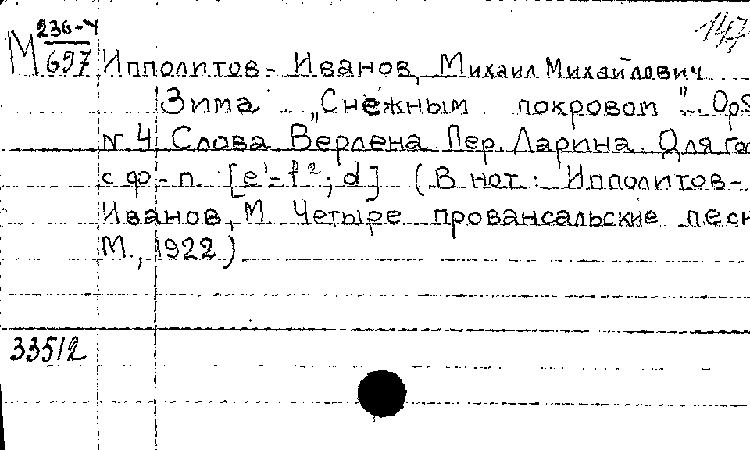 М 236-4
697
147
Ипполитов-Иванов, Михаил Михайлович
Зима „Снежным покровом". Op5
N 4 Слова Верлена Пер. Ларина. Для го
с ф-п. [e¹-f²; d] (В нот: Ипполитов-
Иванов, М. Четыре провансальские песн
М., 1922)
33512